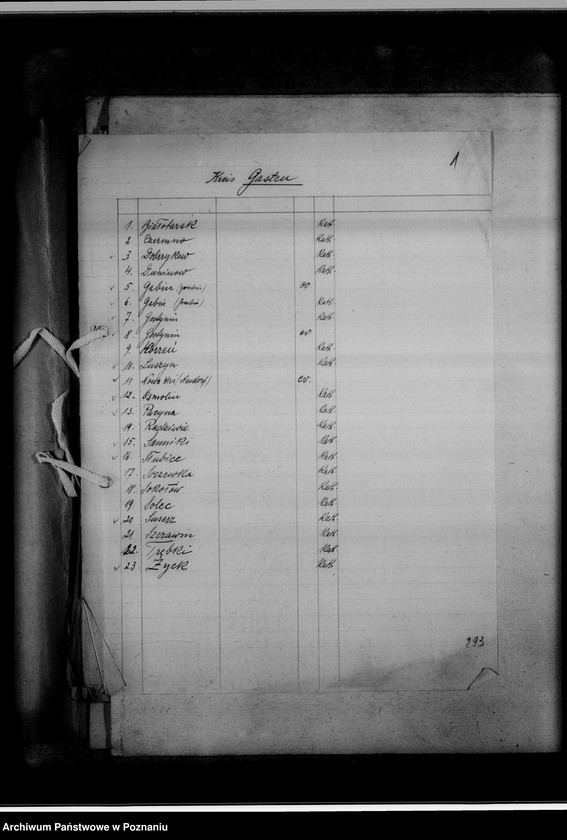 1
Kreis Gasten
1. Białotarsk Kath.
2 Czermno Kath.
✓ 3 Dobrzykow Kath.
4. Duninow Kath.
✓ 5. Gąbin (Gombin) ev.
✓ 6. Gąbin (Gombin) Kath.
✓ 7. Gostynin Kath.
✓ 8. Gostynin ev.
9. Korzeń Kath.
✓ 10. Luszyn Kath.
✓ 11 Nowa Wieś (Neudorf) ev.
✓ 12. Osmolin Kath.
✓ 13. Pacyna Kath.
14. Radziwie Kath.
✓ 15. Sanniki Kath.
✓ 16. Słubice Kath.
17. Soczewka Kath.
18. Sokołów Kath.
19. Solec Kath.
✓ 20 Suserz Kath.
21 Szczawin Kath.
22. Trębki Kath.
✓ 23. Życk Kath.
293
Archiwum Państwowe w Poznaniu